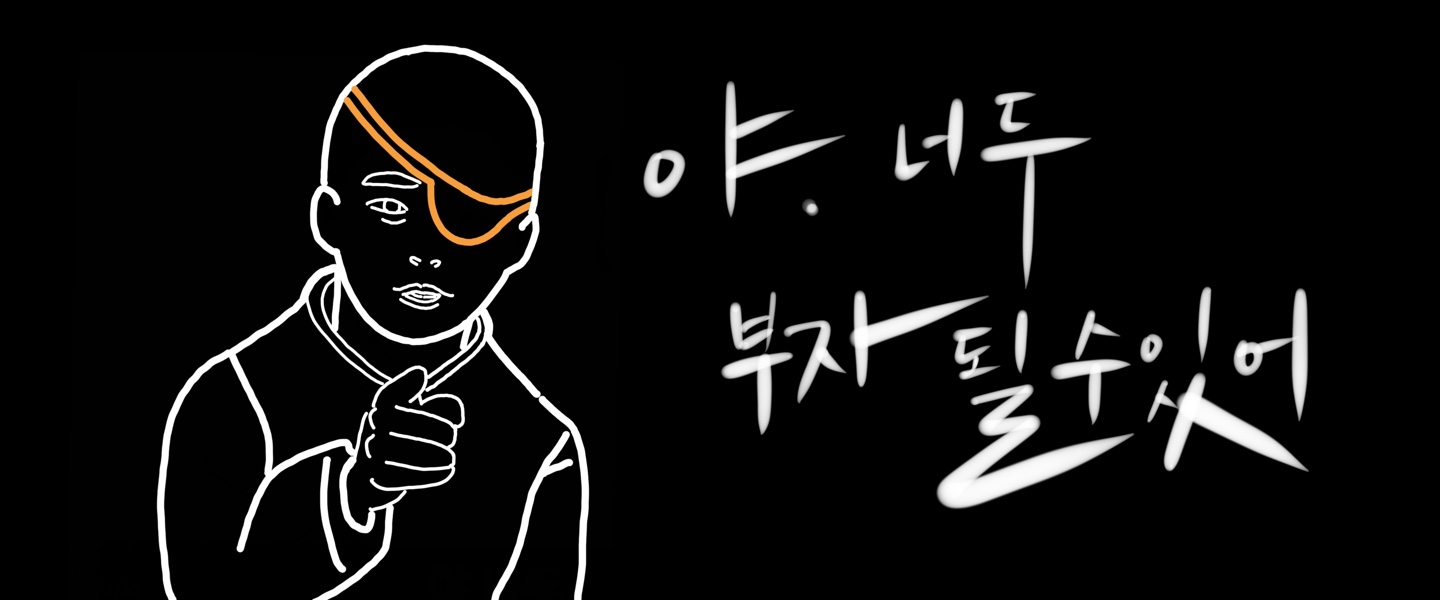 야. 너두
부자 될 수 있어